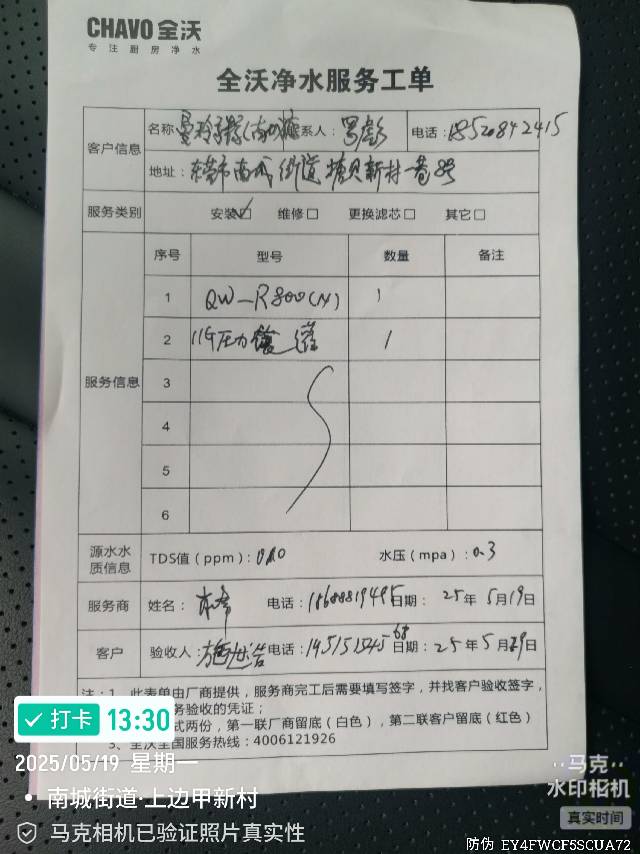 CHAVO 全沃
专注厨房净水
全沃净水服务工单
客户信息
名称 系人: 电话: 18520842415
地址: 东莞市南城街道 新村一巷8号
服务类别 安装☑ 维修□ 更换滤芯□ 其它□
服务信息
序号 型号 数量 备注
1 QW-R800(N) 1
2 11G压力 1
3
4
5
6
源水水质信息
TDS值(ppm): 水压(mpa): 0.3
服务商 姓名: 电话: 日期: 25年5月19日
客户 验收人: 电话: 日期: 25年5月19日
注:1、此表单由厂商提供,服务商完工后需要填写签字,并找客户验收签字,
务验收的凭证;
式两份,第一联厂商留底(白色),第二联客户留底(红色)
3、全沃全国服务热线:4006121926
打卡 13:30
2025/05/19 星期一
南城街道·上边甲新村
马克相机已验证照片真实性
马克
水印相机
真实时间
防伪 EY4FWCF5SCUA72